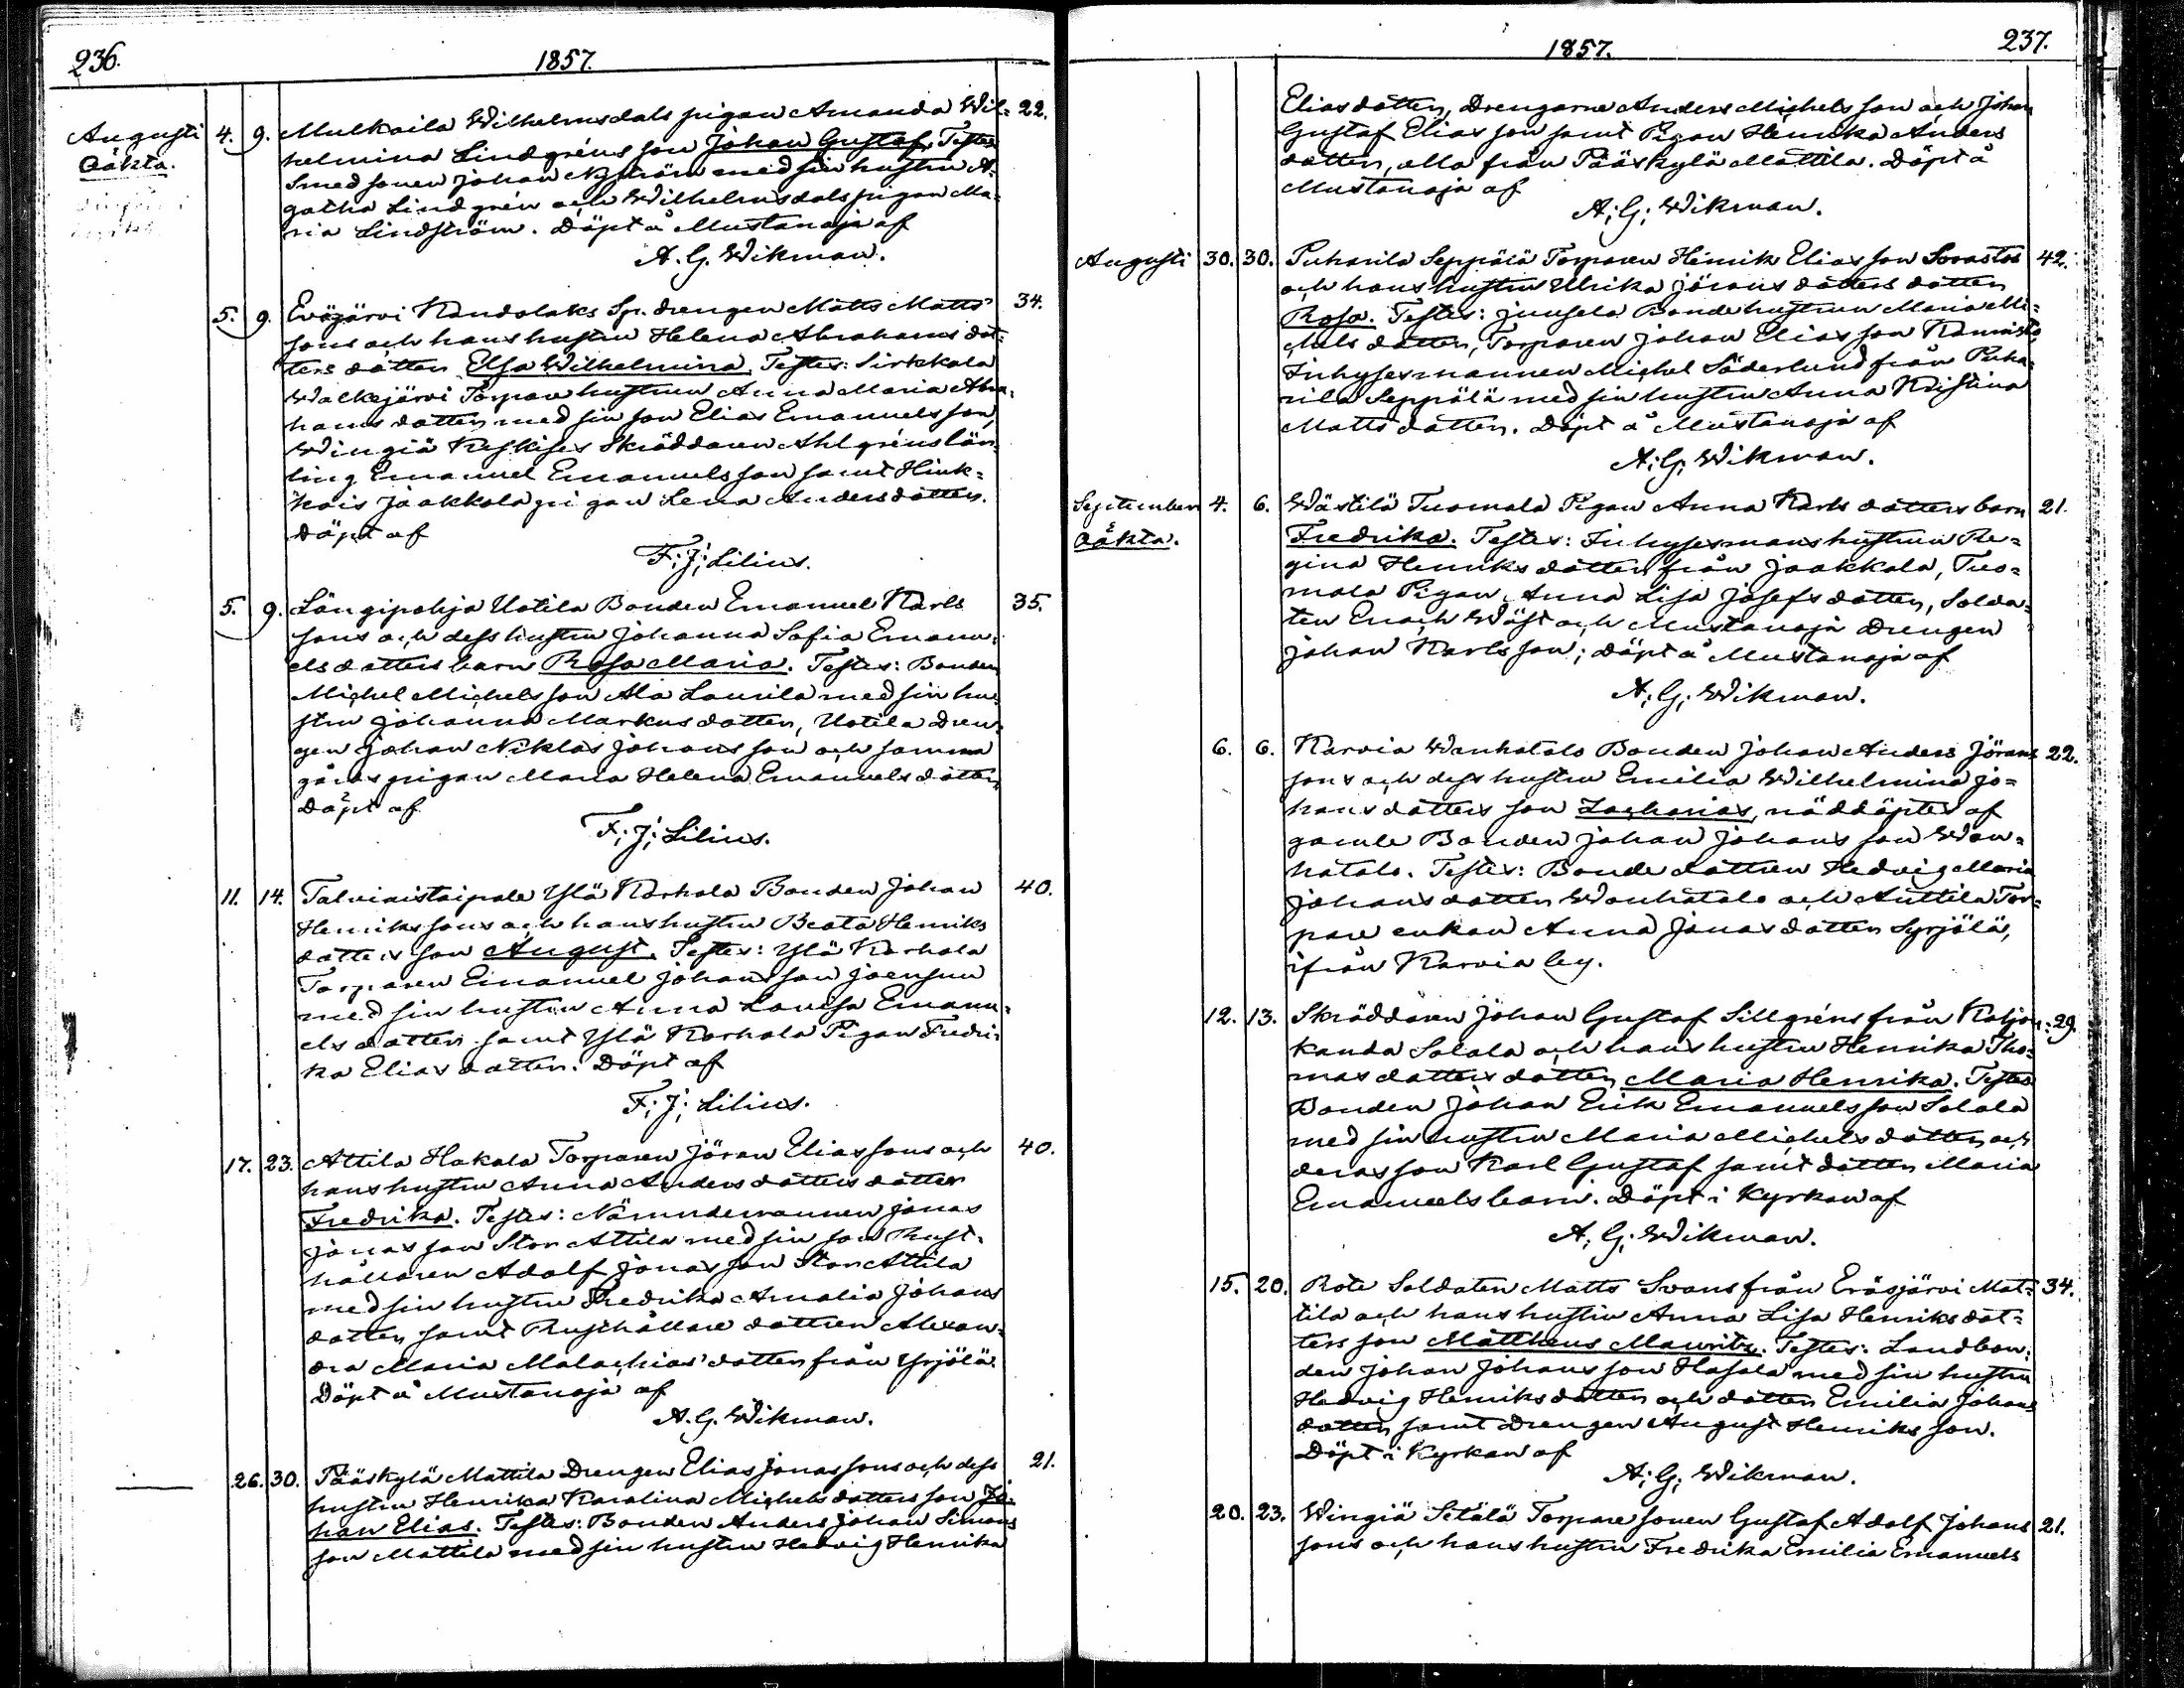 236.
1857.
Augusti 4. 9. Mulkaila Wilhelmsdals pigan Amanda Wil= 22.
Oäkta. helmina Lindgréns son Johan Gustaf. Testes
Smedsonen Johan Nyström med sin hustru A=
gatha Lindgrén och Wilhelmsdals pigan Ma=
ria Lindström. Döpt å Mustanoja af
A. G. Wikman.
5. 9. Eväjärvi Kandolaks Sp. drengen Matts Matts 34.
sons och hans hustru Helena Abrahams dot=
ters dotter Elsa Wilhelmina. Testes: Sirkkala
Walkejärvi Torpare hustrun Anna Maria Abra=
hams dotter med sin son Elias Emanuelsson,
Wingiä Keskises Skräddaren Ahlgréns lär=
ling Emanuel Emanuelsson samt Hiuk=
kois Jaakkola pigan Lena Andersdotter.
Döpt af
F; J; Lilius.
5. 9. Längipohja Uotila Bonden Emanuel Karls 35.
sons och dess hustru Johanna Sofia Emanu=
els dotters barn Rosa Maria. Testes: Bonden
Michel Michelsson Ala Laurila med sin hu=
stru Johanna Markusdotter, Uotila Dren=
gen Johan Niklas Johansson och samma
gårds pigan Maria Helena Emanuelsdotter
Döpt af
F; J; Lilius.
11. 14. Talviaistaipale Ylä Karhola Bonden Johan 40.
Henrikssons och hans hustru Beata Henriks
dotters son August. Testes: Ylä Karhola
Torparen Emanuel Johansson Joensuu
med sin hustru Anna Lovisa Emanu=
els dotter samt Ylä Karhola Pigan Fredri=
ka Elias dotter. Döpt af
F; J; Lilius.
17. 23. Attila Hakala Torparen Jöran Eliassons och 40.
hans hustru Anna Anders dotters dotter
Fredrika. Testes: Nämndemannen Jonas
Jonasson Stor Attila med sin son Rust=
hållaren Adolf Jonasson Stor Attila
med sin hustru Fredrika Amalia Johans
dotter samt Rusthållare dottren Alexan=
dra Maria Malachias' dotter från Yrjölä.
Döpt å Mustanoja af
A. G. Wikman.
26. 30. Pääskylä Mattila Drengen Elias Jonassons och dess 21.
hustru Henrika Karolina Michels dotters son Jo=
han Elias. Testes: Bonden Anders Johan Simons
son Mattila med sin hustru Hedvig Henrika
1857.
237.
Elias dotter, Drengarne Anders Michelsson och Johan
Gustaf Eliasson samt Pigan Henrika Anders
dotter, alla från Pääskylä Mattila. Döpt å
Mustanoja af
A; G; Wikman.
Augusti 30. 30. Puharila Seppälä Torparen Henrik Eliasson Sorastos 42.
och hans hustru Ulrika Jörans dotters dotter
Rosa. Testes: Juusela Bondehustrun Maria Mi=
chels dotter, Torparen Johan Eliasson Kannisto,
Inhysesmannen Michel Söderlund från Puha=
rila Seppälä med sin hustru Anna Kristina
Matts dotter. Döpt å Mustanoja af
A; G; Wikman.
September 4. 6. Wästilä Tuomala Pigan Anna Karls dotters barn 21.
Oäkta. Fredrika. Testes: Inhysesmans hustrun Re=
gina Henriks dotter från Jaakkola, Tuo=
mala Pigan Anna Lisa Josefs dotter, Solda=
ten Enoch Wäst och Mustanoja Drengen
Johan Karlsson; Döpt å Mustanoja af
A; G; Wikman.
6. 6. Karvia Wanhatalo Bonden Johan Anders Jörans 22.
sons och dess hustru Emilia Wilhelmina Jo=
hans dotters son Zacharias, nöddöpter af
gamle Bonden Johan Johansson Wan=
hatalo. Testes: Bonde dottren Hedvig Maria
Johans dotter Wanhatalo och Anttila Tor=
pare enkan Anna Jonas dotter Syrjälä,
ifrån Karvia by.
12. 13. Skräddaren Johan Gustaf Sillgréns från Koljon= 29.
kanda Salala och hans hustru Henrika Tho=
mas dotters dotter Maria Henrika. Testes
Bonden Johan Erik Emanuelsson Salala
med sin hustru Maria Michels dotter och
deras son Karl Gustaf samt dotter Maria
Emanuels barn. Döpt i Kyrkan af
A; G; Wikman.
15. 20. Rote Soldaten Matts Svans från Eräsjärvi Mat= 34.
tila och hans hustru Anna Lisa Henriks dot=
ters son Mattheus Mauritz. Testes: Landbon=
den Johan Johansson Hasala med sin hustru
Hedvig Henriks dotter och dotter Emilia Johans
dotter samt Drengen August Henriksson.
Döpt i Kyrkan af
A; G; Wikman.
20. 23. Wingiä Setälä Torpare sonen Gustaf Adolf Johans 21.
sons och hans hustru Fredrika Emilia Emanuels